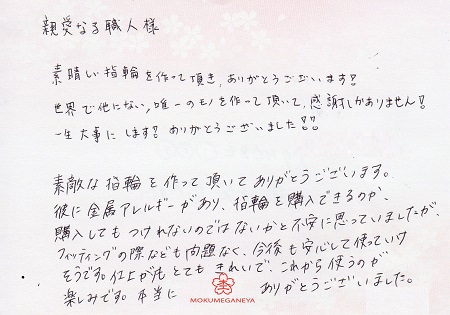 親愛なる職人様
素晴しい指輪を作って頂き、ありがとうございます!
世界で他にない、唯一のモノを作って頂いて、感謝しかありません!
一生大事にします! ありがとうございました!!
素敵な指輪を作って頂いてありがとうございます。
彼に金属アレルギーがあり、指輪を購入できるのか、
購入してもつけれないのではないかと不安に思っていましたが、
フィッティングの際なども問題なく、今後も安心して使っていけ
そうです。仕上がりもとてもきれいで、これから使うのが
楽しみです。本当に ありがとうございました。
MOKUMEGANEYA